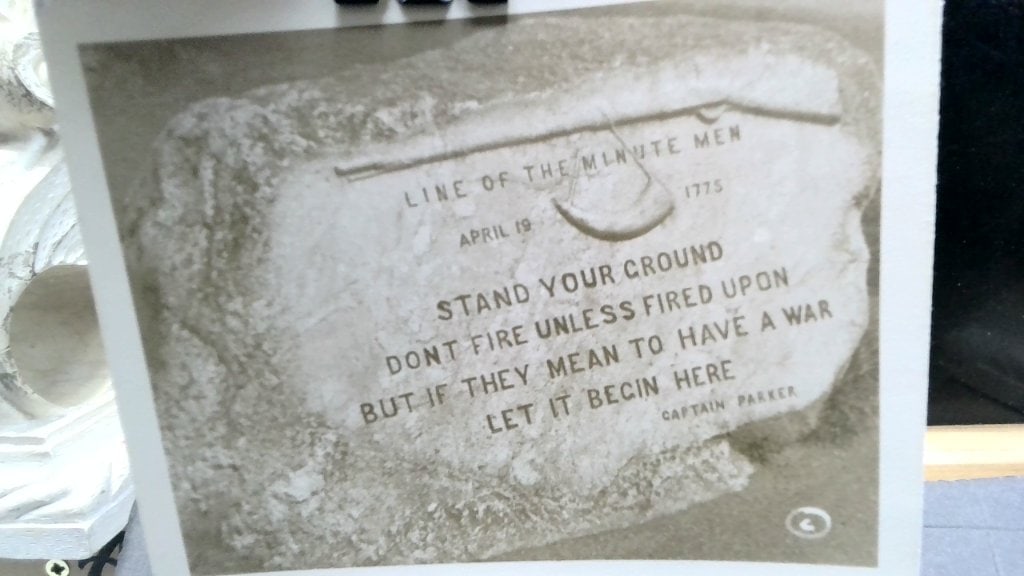 LINE OF THE MINUTE MEN
APRIL 19 1775
STAND YOUR GROUND
DONT FIRE UNLESS FIRED UPON
BUT IF THEY MEAN TO HAVE A WAR
LET IT BEGIN HERE
CAPTAIN PARKER
C